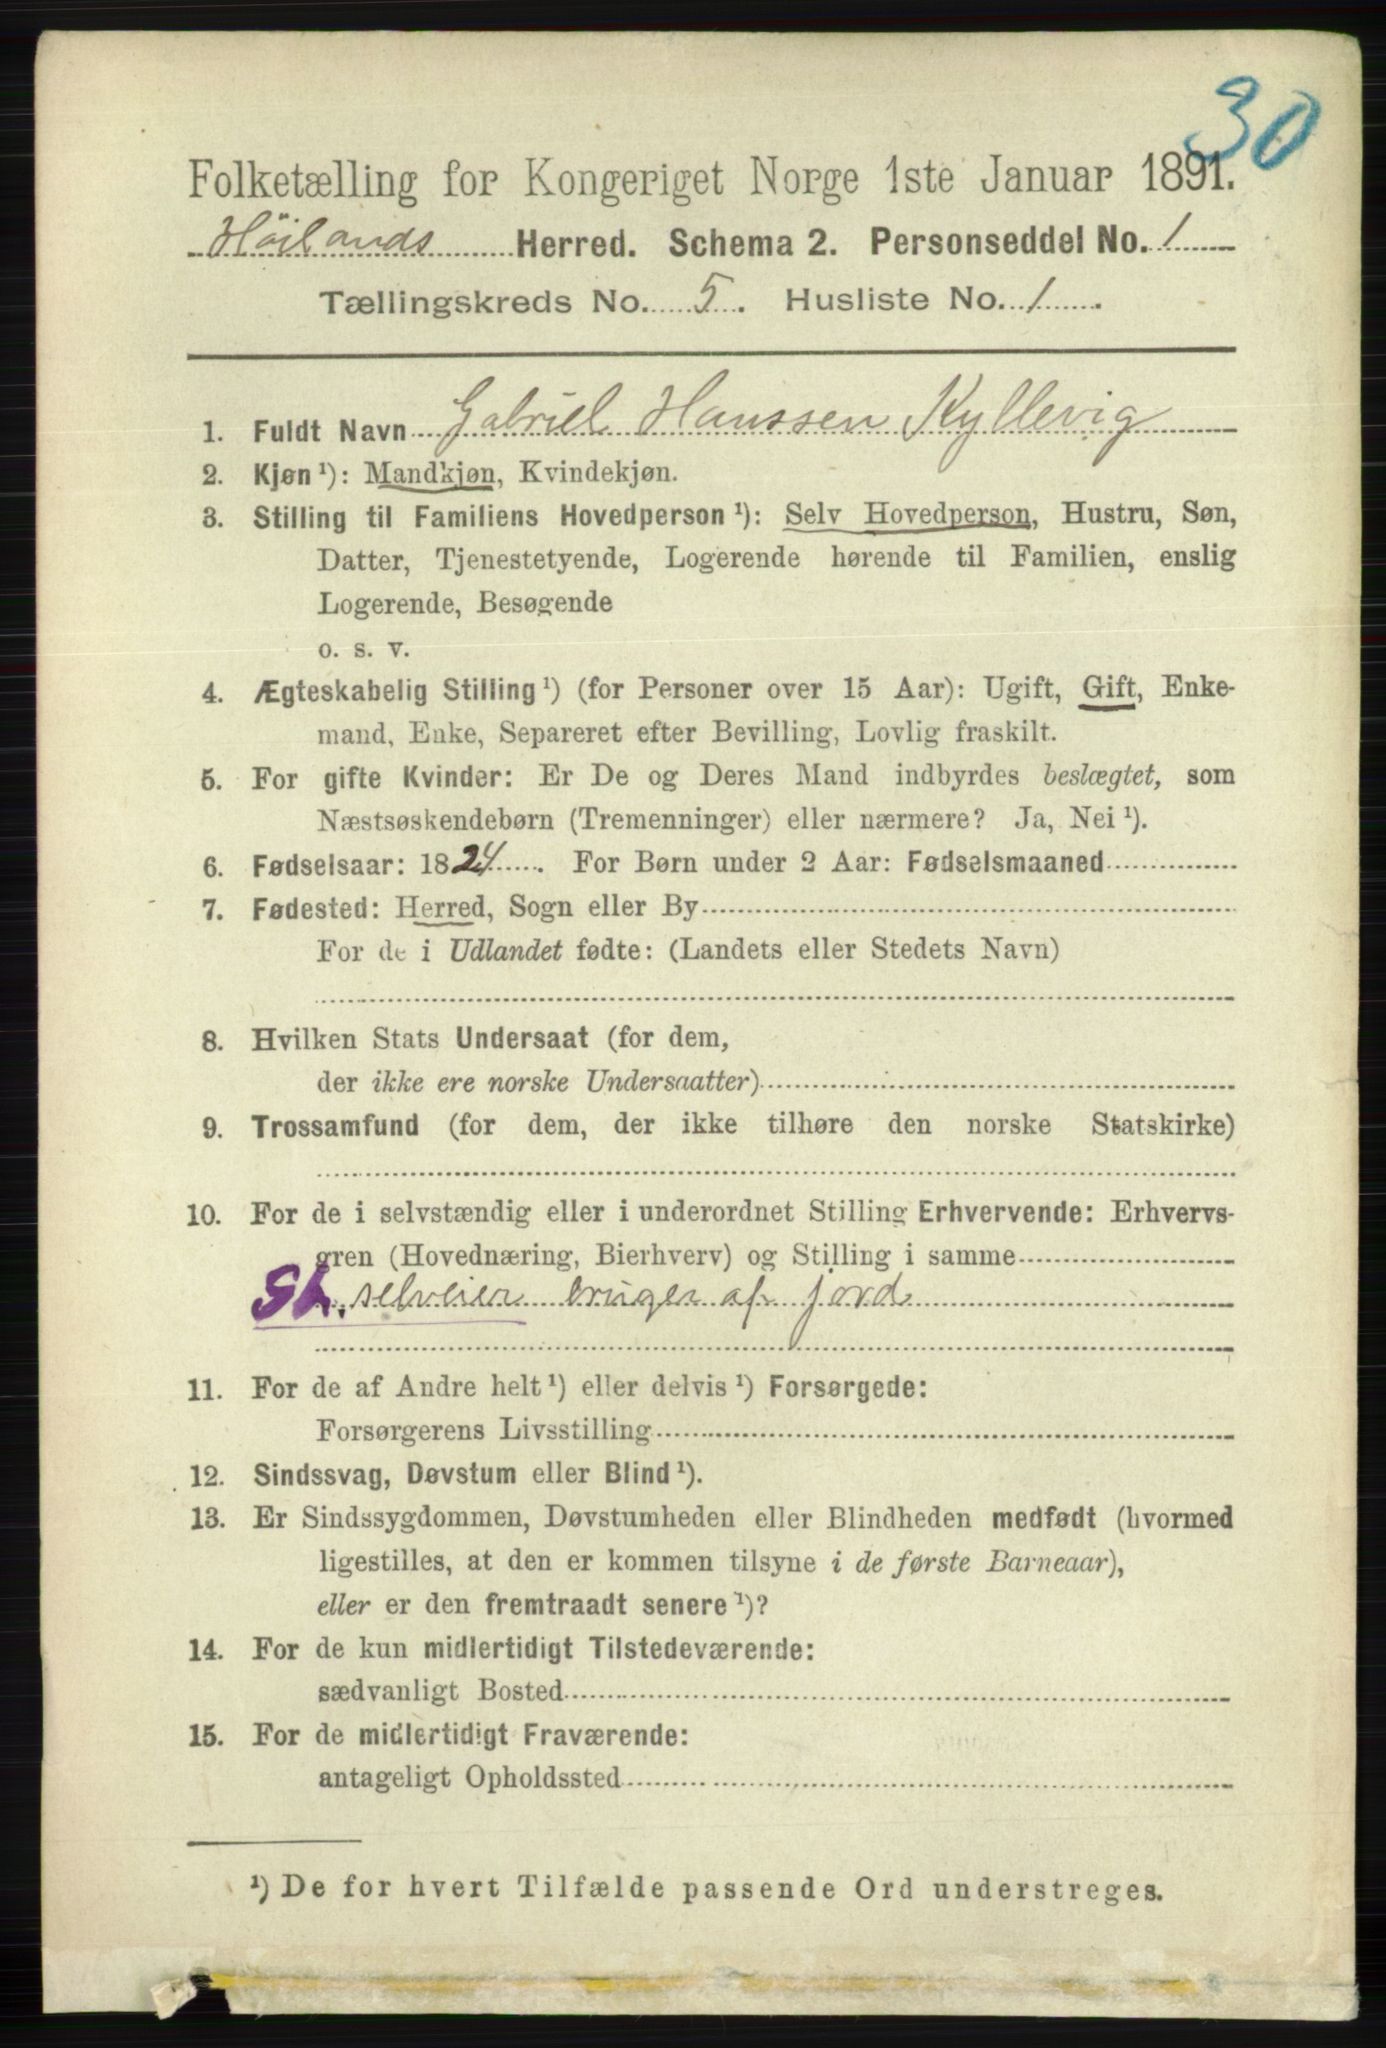 30
Folketælling for Kongeriget Norge 1ste Januar 1891.
Höilands Herred. Schema 2. Personseddel No. 1
Tællingskreds No. 5. Husliste No. 1.
1. Fuldt Navn Gabriel Hanssen Kyllevig
2. Kjøn¹): Mandkjøn, Kvindekjøn.
3. Stilling til Familiens Hovedperson¹): Selv Hovedperson, Hustru, Søn,
Datter, Tjenestetyende, Logerende hørende til Familien, enslig
Logerende, Besøgende
o. s. v.
4. Ægteskabelig Stilling¹) (for Personer over 15 Aar): Ugift, Gift, Enke-
mand, Enke, Separeret efter Bevilling, Lovlig fraskilt.
5. For gifte Kvinder: Er De og Deres Mand indbyrdes beslægtet, som
Næstsøskendebørn (Tremenninger) eller nærmere? Ja, Nei¹).
6. Fødselsaar: 1824. For Børn under 2 Aar: Fødselsmaaned
7. Fødested: Herred, Sogn eller By
For de i Udlandet fødte: (Landets eller Stedets Navn)
8. Hvilken Stats Undersaat (for dem,
der ikke ere norske Undersaatter)
9. Trossamfund (for dem, der ikke tilhøre den norske Statskirke)
10. For de i selvstændig eller i underordnet Stilling Erhvervende: Erhvervs-
gren (Hovednæring, Bierhverv) og Stilling i samme
selveier bruger af jord
11. For de af Andre helt¹) eller delvis¹) Forsørgede:
Forsørgerens Livsstilling
12. Sindssvag, Døvstum eller Blind¹).
13. Er Sindssygdommen, Døvstumheden eller Blindheden medfødt (hvormed
ligestilles, at den er kommen tilsyne i de første Barneaar),
eller er den fremtraadt senere¹)?
14. For de kun midlertidigt Tilstedeværende:
sædvanligt Bosted
15. For de midlertidigt Fraværende:
antageligt Opholdssted
¹) De for hvert Tilfælde passende Ord understreges.